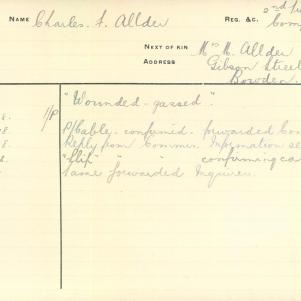 NAME Charles. F. Allder REG. &C. 2nd
NEXT OF KIN Mrs M. Allder
ADDRESS Gibson Street
Bowden.
"Wounded-gassed".
P/Cable. confirmed. forwarded
Reply from Commn. Information
"Slip" " " confirming
Same forwarded Inquirer.